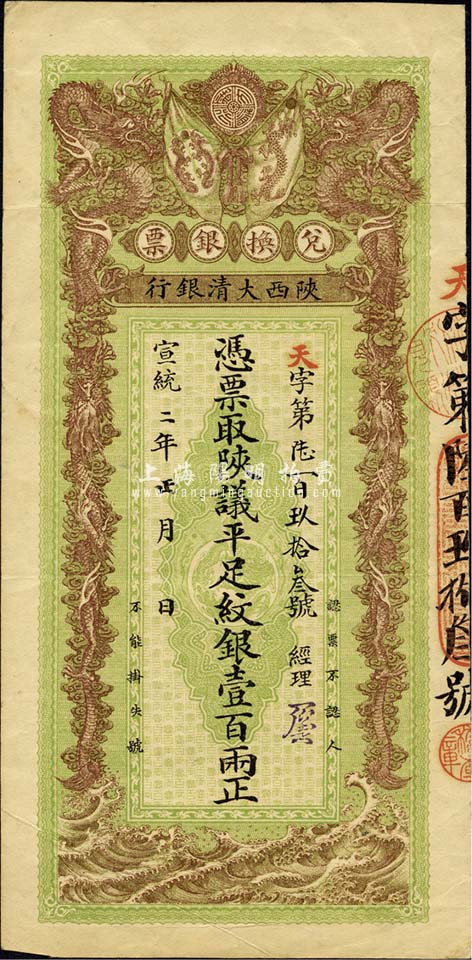 兌換銀票
陝西大清銀行
天字第陸百玖拾叁號 經理
認票不認人
憑票取陝議平足紋銀壹百兩正
宣統二年正月 日
不能掛失號
天字第陸百玖拾叁號
上海陽明拍賣
www.yangmingauction.com